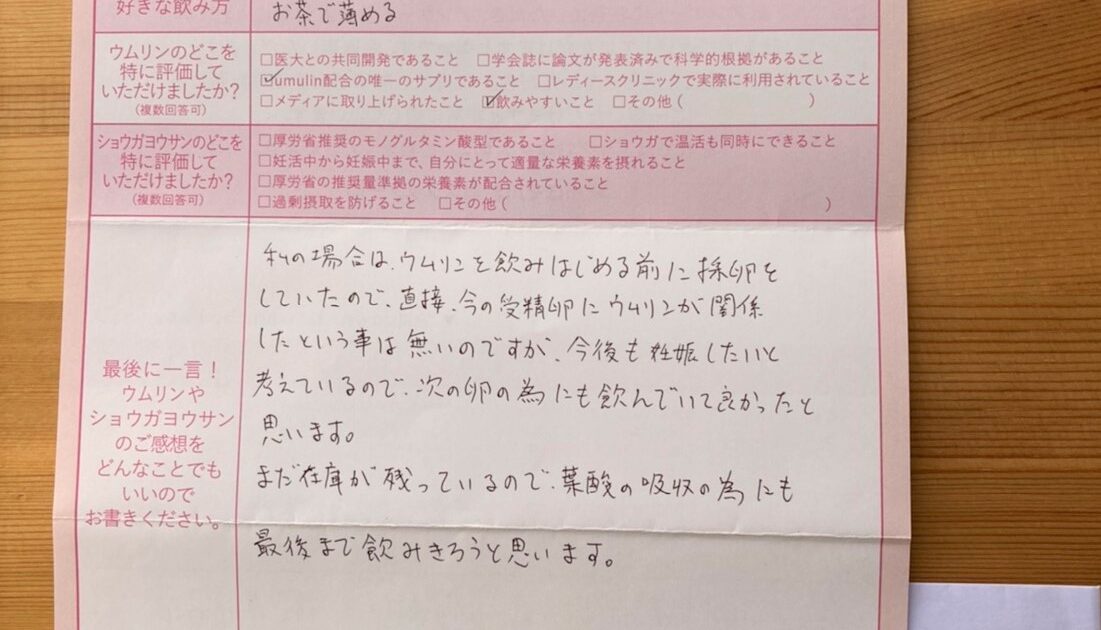 好きな飲み方
お茶で薄める
ウムリンのどこを
特に評価して
いただけましたか?
(複数回答可)
□医大との共同開発であること □学会誌に論文が発表済みで科学的根拠があること
☑umulin配合の唯一のサプリであること □レディースクリニックで実際に利用されていること
□メディアに取り上げられたこと ☑飲みやすいこと □その他( )
ショウガヨウサンのどこを
特に評価して
いただけましたか?
(複数回答可)
□厚労省推奨のモノグルタミン酸型であること □ショウガで温活も同時にできること
□妊活中から妊娠中まで、自分にとって適量な栄養素を摂れること
□厚労省の推奨量準拠の栄養素が配合されていること
□過剰摂取を防げること □その他( )
最後に一言!
ウムリンや
ショウガヨウサン
のご感想を
どんなことでも
いいので
お書きください。
私の場合は、ウムリンを飲みはじめる前に採卵を
していたので、直接、今の受精卵にウムリンが関係
したという事は無いのですが、今後も妊娠したいと
考えているので、次の卵の為にも飲んでいて良かったと
思います。
まだ在庫が残っているので、葉酸の吸収の為にも
最後まで飲みきろうと思います。